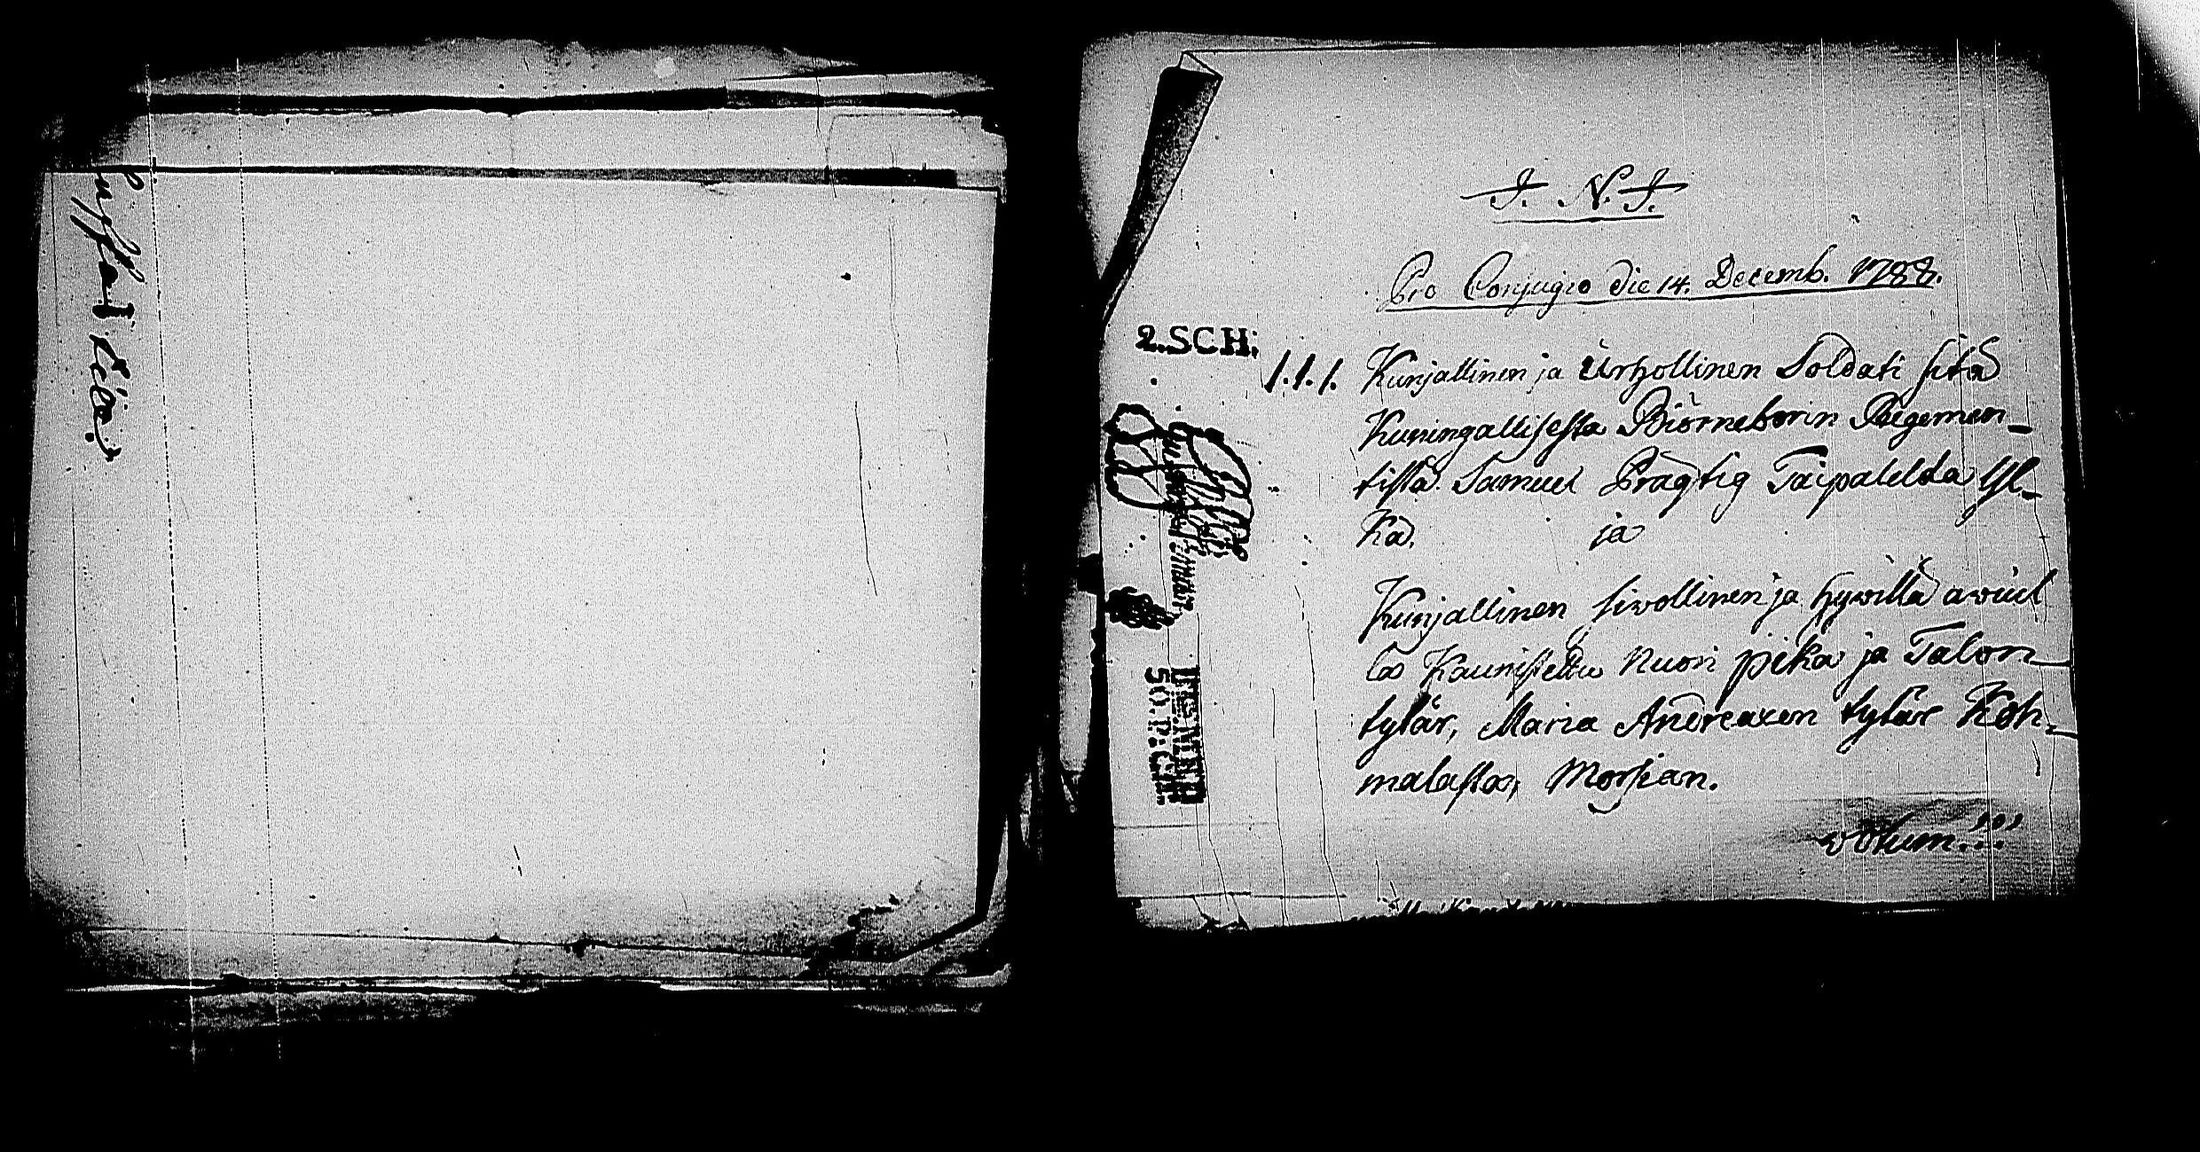 J. N. J.
Pro Conjugio die 14. Decemb. 1788.
2.SCH;
1.1.1. Kunjallinen ja Urhollinen Soldati sitä
Kuningallisesta Biörneborin Regemen-
tistä Samuel Prägtig Taipalelda Yl-
kä. ja
Kunjallinen siwollinen ja hywillä awuil
la Kaunistettu Nuori pika ja Talon-
tytär, Maria Andreaxen tytär Koh-
malasta, Morsian.
votum!!!
50.P:CH.